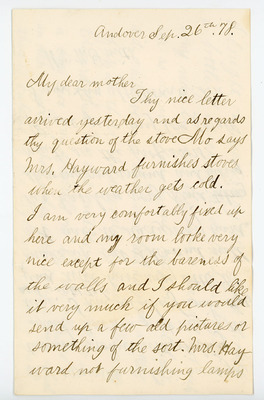 Andover Sep. 26th. 78.
My dear mother
Thy nice letter
arrived yesterday and as regards
thy question of the stove Mo says
Mrs. Hayward furnishes stoves
when the weather gets cold.
I am very comfortably fixed up
here and my room looks very
nice except for the bareness of
the walls and I should like
it very much if you would
send up a few old pictures or
something of the sort. Mrs. Hay
ward not furnishing lamps